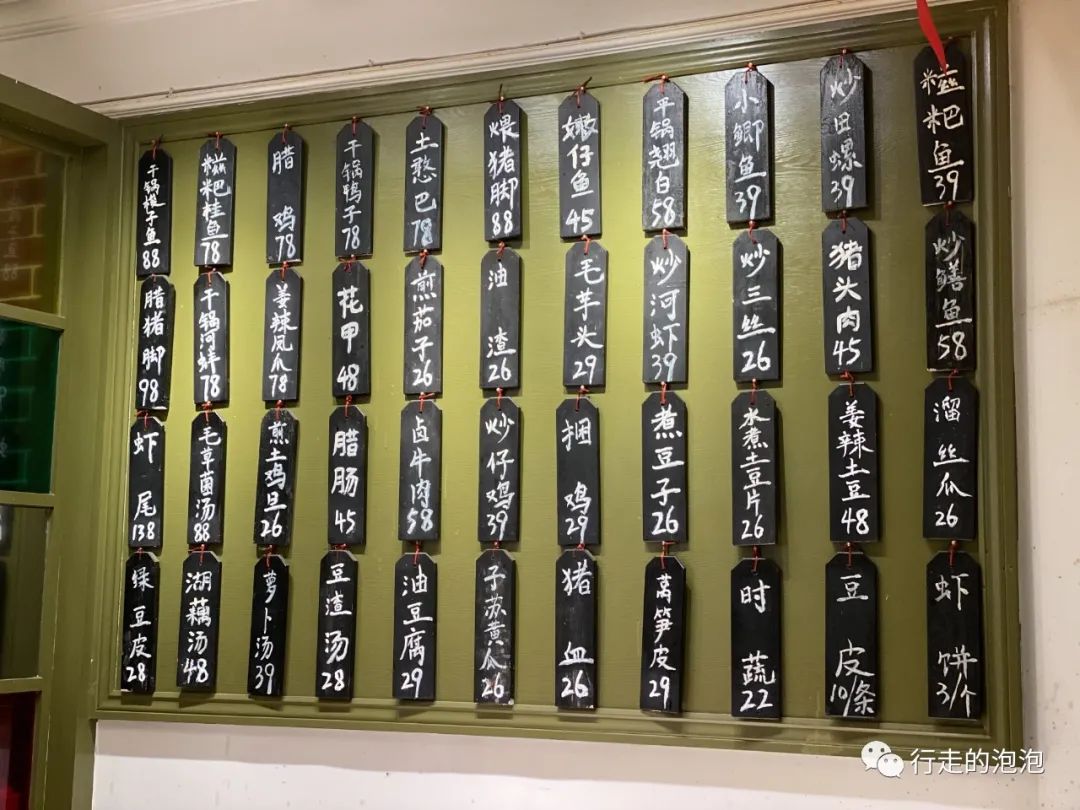 干锅梭子鱼 88
糍粑桂鱼 78
腊鸡 78
干锅鸭子 78
土憨巴 78
煨猪脚 88
嫩仔鱼 45
平锅翘白 58
小鲫鱼 39
炒田螺 39
糍粑鱼 39
腊猪脚 98
干锅河蚌 78
姜辣凤爪 78
花甲 48
煎茄子 26
油渣 26
毛芋头 29
炒河虾 39
炒三丝 26
猪头肉 45
炒鳝鱼 58
虾尾 138
毛草菌汤 88
煎土鸡旦 26
腊肠 45
卤牛肉 58
炒仔鸡 39
捆鸡 29
煮豆子 26
水煮土豆片 26
姜辣土豆 48
溜丝瓜 26
绿豆皮 28
湖藕汤 48
萝卜汤 39
豆渣汤 28
油豆腐 29
子苏黄瓜 26
猪血 26
莴笋皮 29
时蔬 22
豆皮 10/条
虾饼 3/个
行走的泡泡